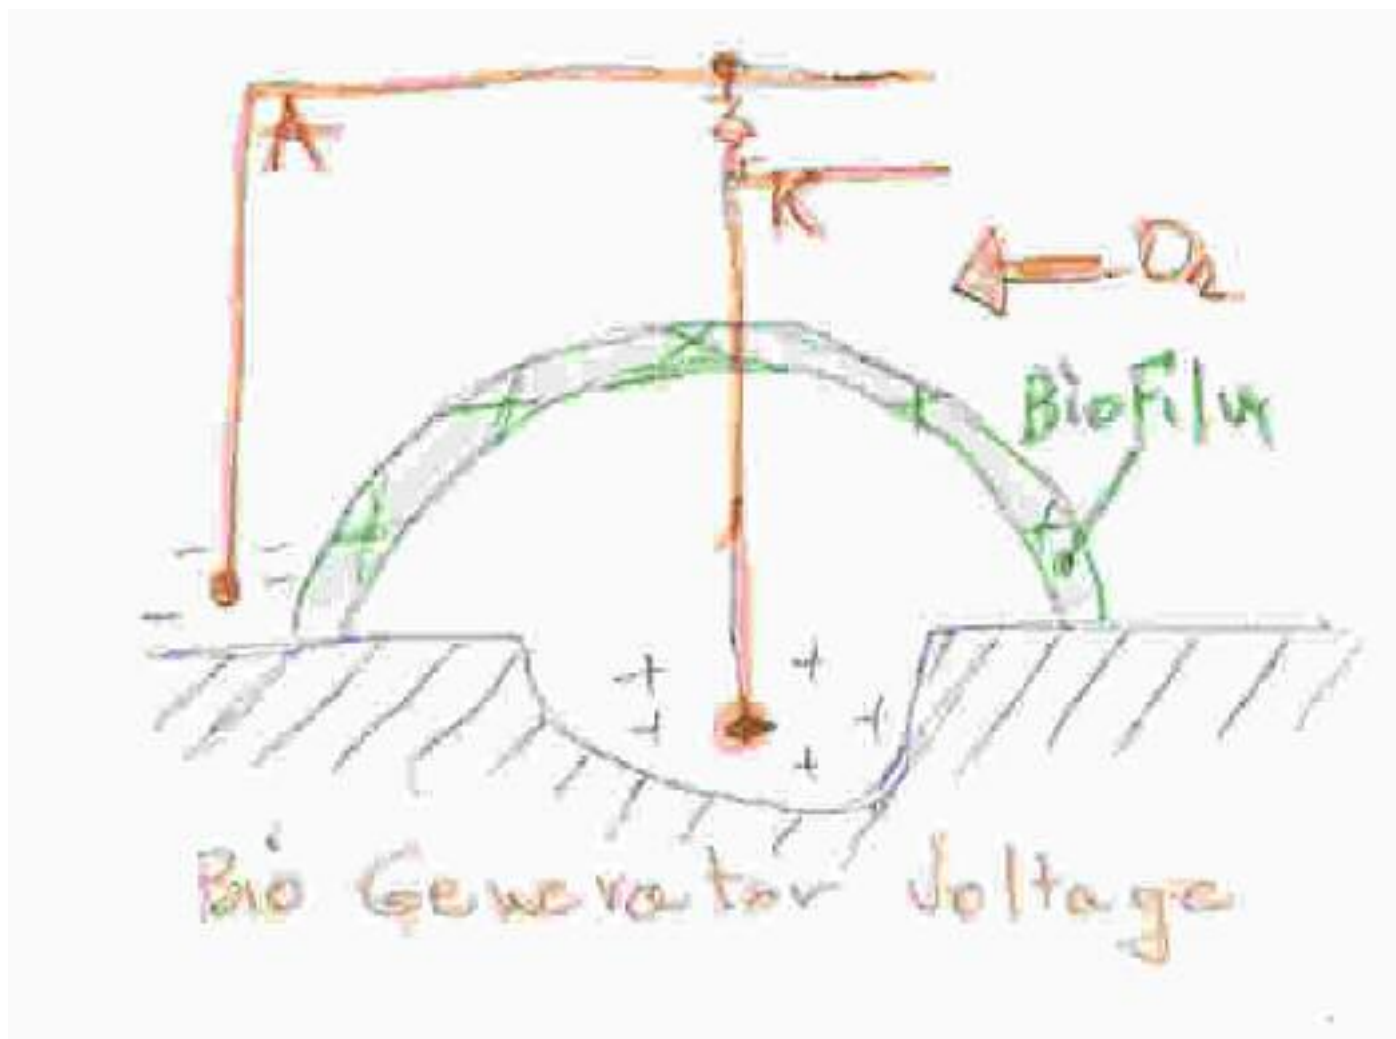 A
K
Q
BioFilm
Bio Generator Voltage